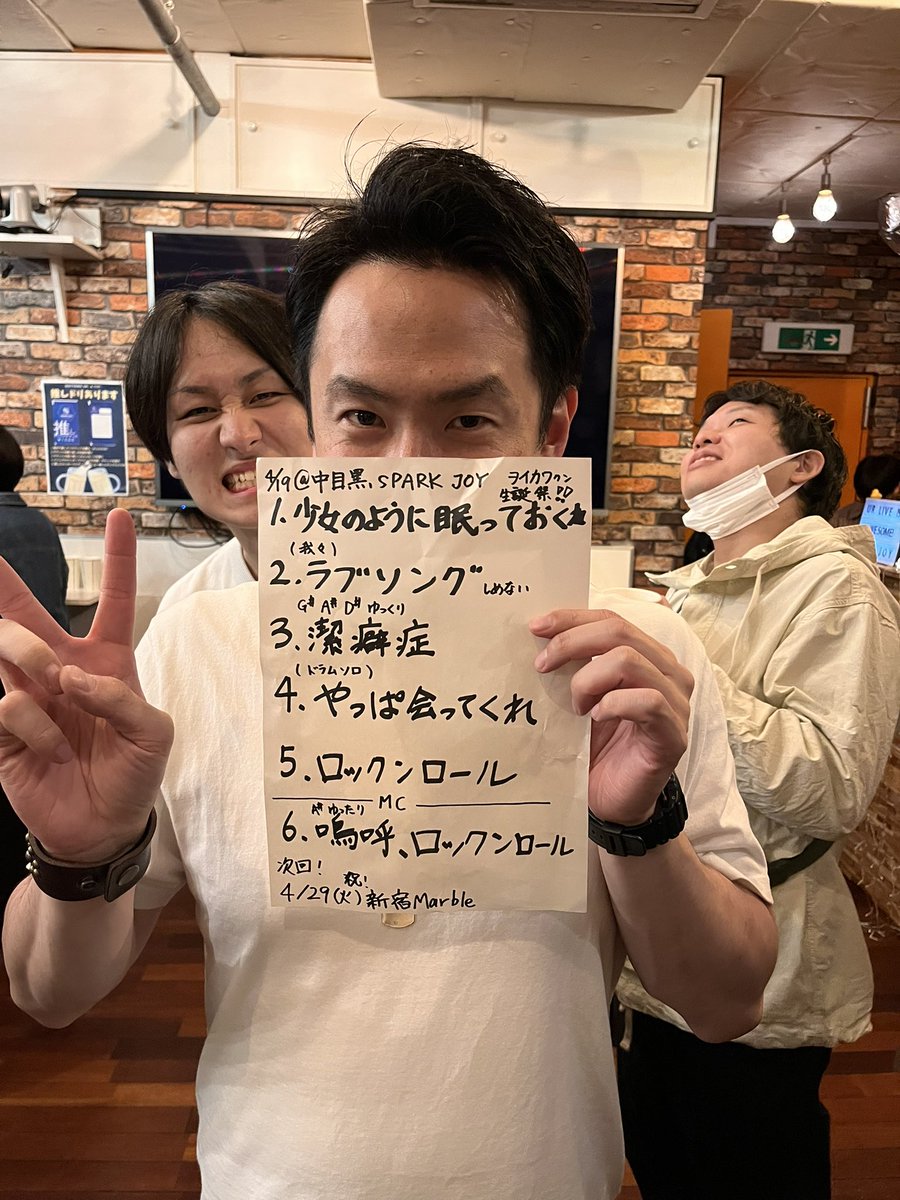 4/19@中目黒、SPARK JOY ヨイカワクン
生誕祭!!
1. 少女のように眠っておくれ
(我々)
2. ラブソングしめない
G# A# D# ゆっくり
3. 潔癖症
(ドラムソロ)
4. やっぱ会ってくれ
5. ロックンロール
MC
A# ゆったり
6. 嗚呼、ロックンロール
次回!
祝!
4/29(火)新宿Marble
推しドリあります
推
UR LIVE
JOY